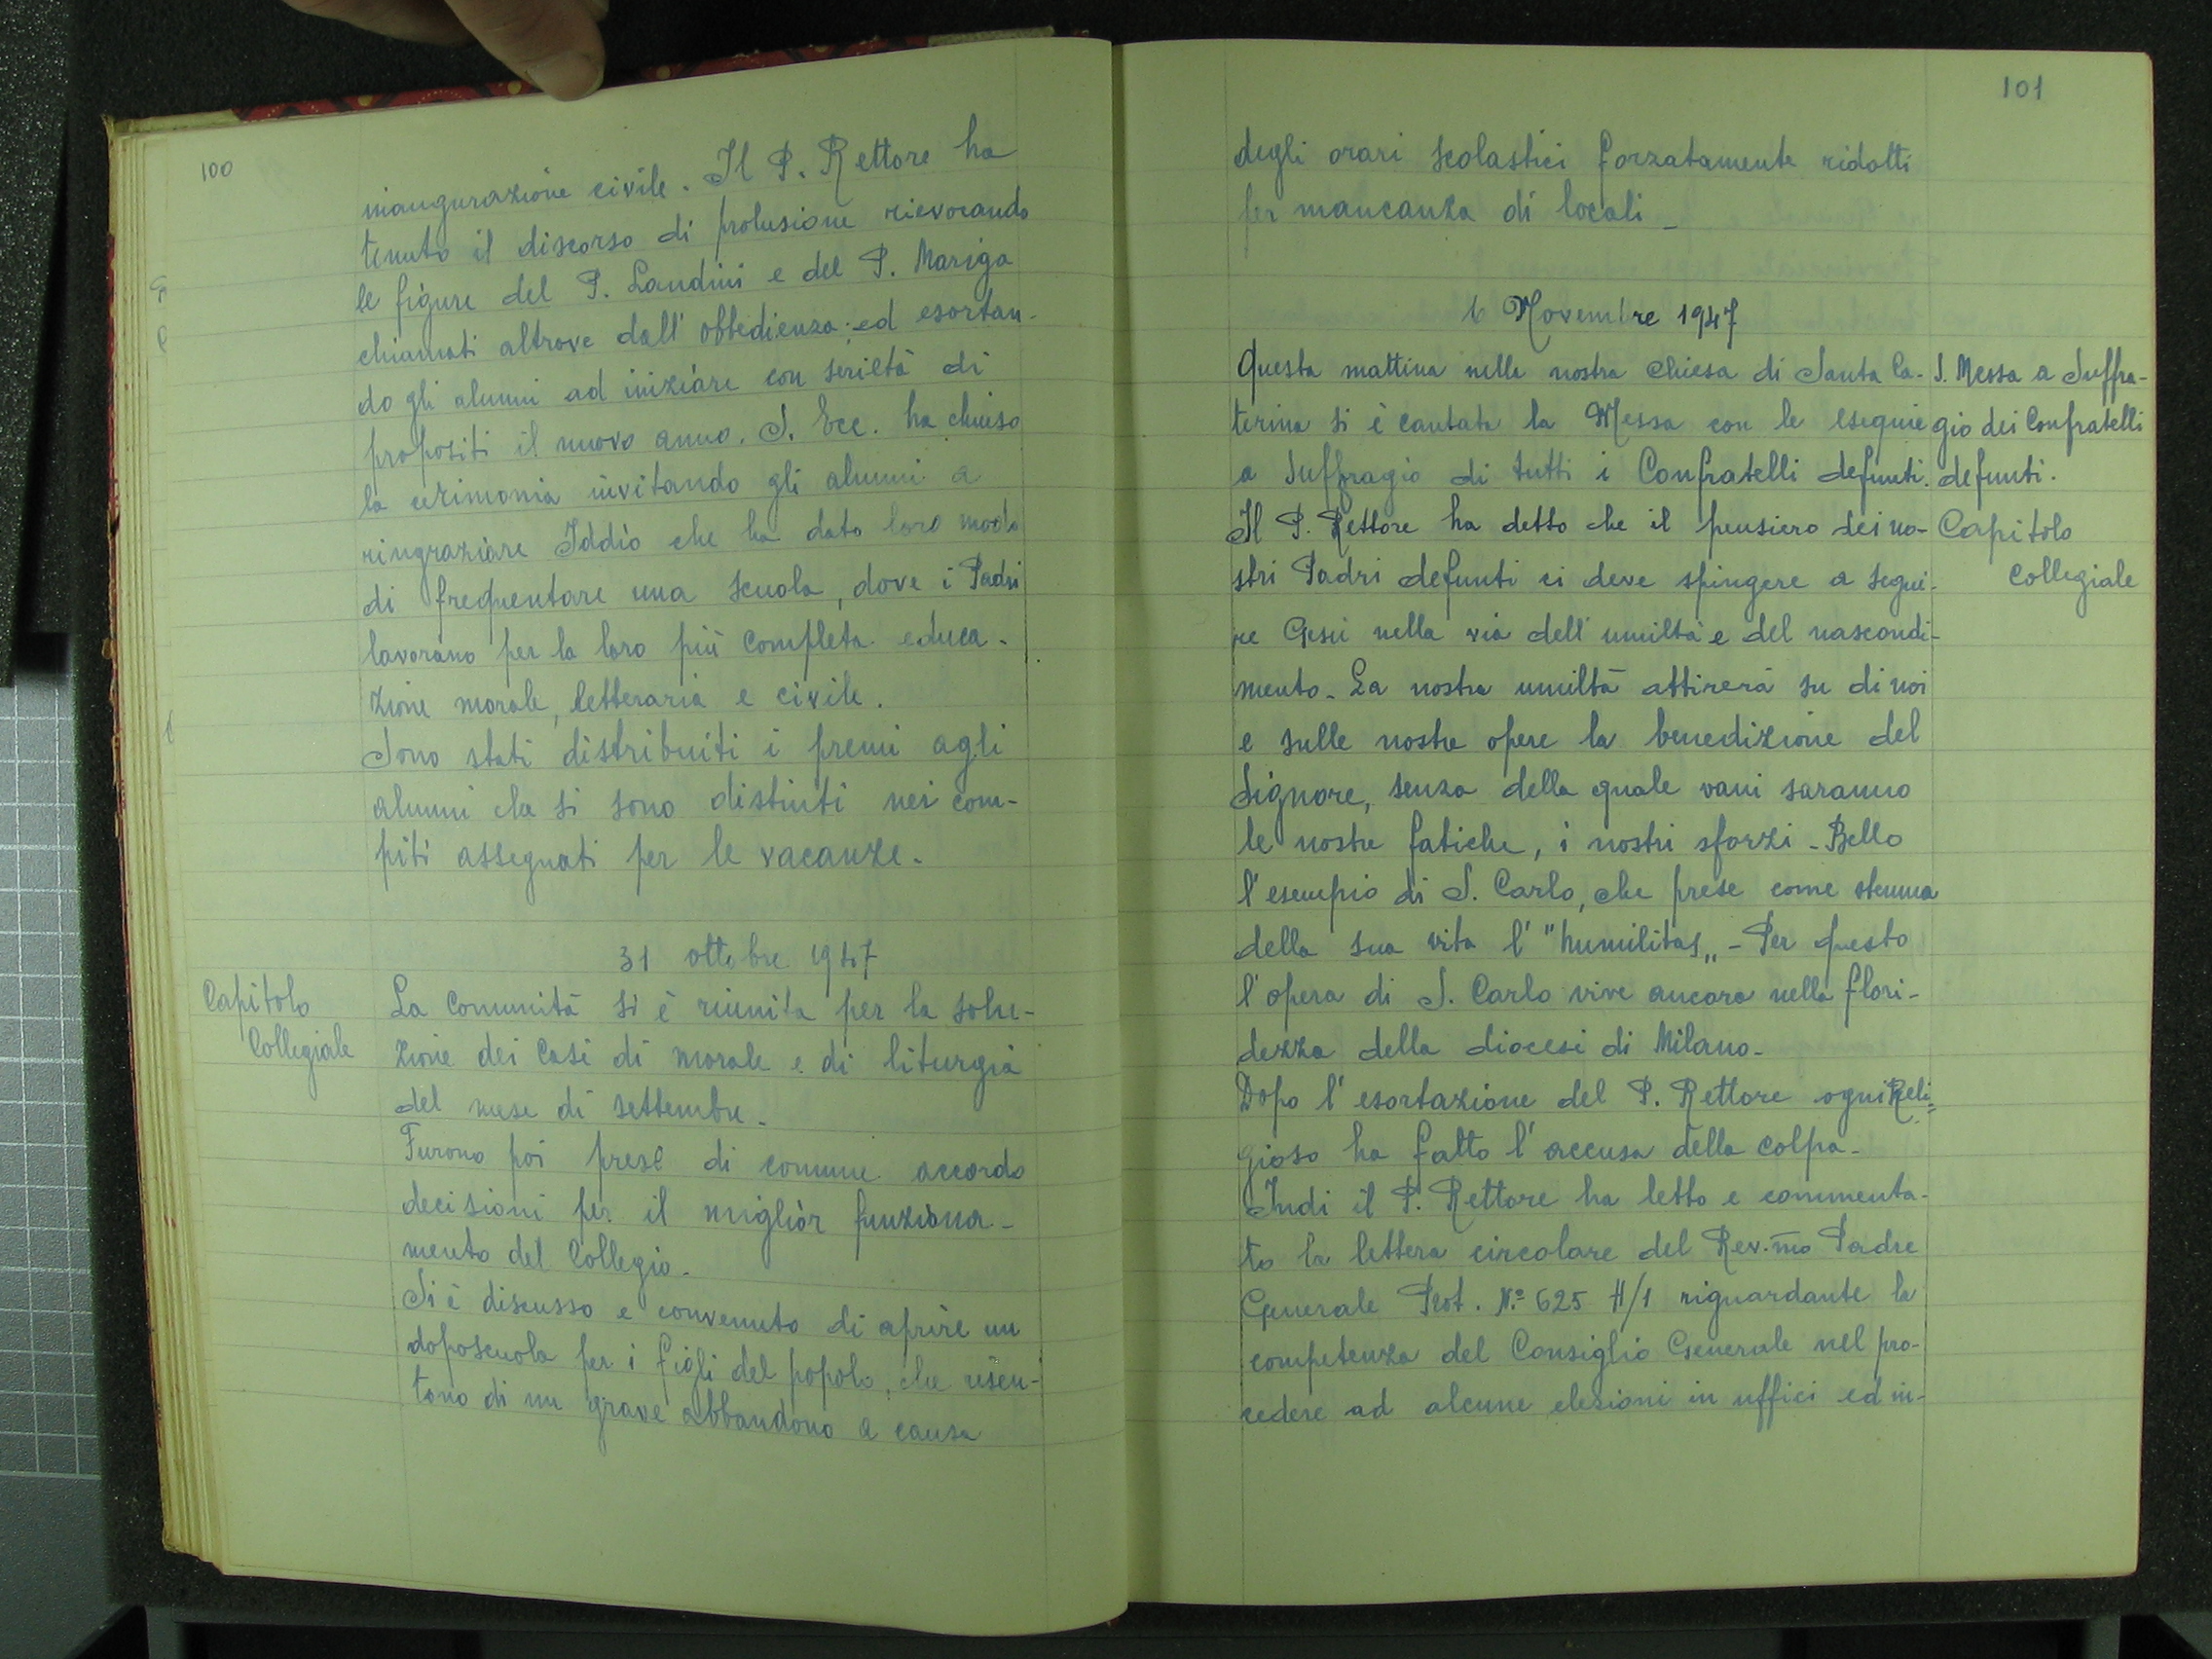 100
inaugurazione civile. Il P. Rettore ha
tenuto il discorso di prolusione rievocando
le figure del P. Landini e del P. Mariga
chiamati altrove dall'obbedienza; ed esortan-
do gli alunni ad iniziare con serietà di
propositi il nuovo anno. S. Ecc. ha chiuso
la cerimonia invitando gli alunni a
ringraziare Iddio che ha dato loro modo
di frequentare una scuola, dove i Padri
lavorano per la loro più completa educa-
zione morale, letteraria e civile.
Sono stati distribuiti i premi agli
alunni che si sono distinti nei com-
piti assegnati per le vacanze.
31 ottobre 1947
Capitolo
Collegiale
La Comunità si è riunita per la solu-
zione dei Casi di morale e di liturgia
del mese di settembre.
Furono poi prese di comune accordo
decisioni per il miglior funziona-
mento del Collegio.
Si è discusso e convenuto di aprire un
doposcuola per i figli del popolo, che risen-
tono di un grave abbandono a causa
101
degli orari scolastici forzatamente ridotti
per mancanza di locali -
6 Novembre 1947
Questa mattina nella nostra chiesa di Santa Ca-
terina si è cantata la Messa con le esequie
a suffragio di tutti i Confratelli defunti.
S. Messa a Suffra-
gio dei Confratelli
defunti.
Capitolo
Collegiale
Il P. Rettore ha detto che il pensiero dei no-
stri Padri defunti ci deve spingere a segui-
re Gesù nella via dell'umiltà e del nascondi-
mento. La nostra umiltà attirerà su di noi
e sulle nostre opere la benedizione del
Signore, senza della quale vani saranno
le nostre fatiche, i nostri sforzi - Bello
l'esempio di S. Carlo, che prese come stemma
della sua vita l' "humilitas„ - Per questo
l'opera di S. Carlo vive ancora nella flori-
dezza della diocesi di Milano -
Dopo l'esortazione del P. Rettore ogni Reli=
gioso ha fatto l'accusa della colpa -
Indi il P. Rettore ha letto e commenta-
to la lettera circolare del Rev.mo Padre
Generale Prot. N.º 625 H/1 riguardante la
competenza del Consiglio Generale nel pro-
cedere ad alcune elezioni in uffici ed in-